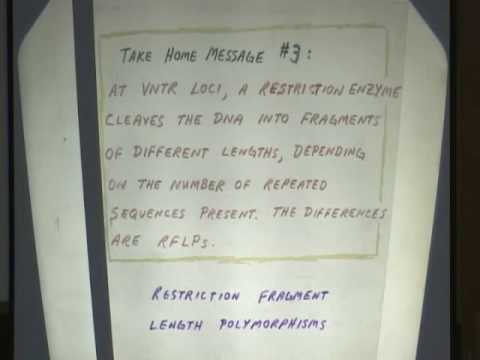 TAKE HOME MESSAGE #3:
AT VNTR LOCI, A RESTRICTION ENZYME
CLEAVES THE DNA INTO FRAGMENTS
OF DIFFERENT LENGTHS, DEPENDING
ON THE NUMBER OF REPEATED
SEQUENCES PRESENT. THE DIFFERENCES
ARE RFLPs.
RESTRICTION FRAGMENT
LENGTH POLYMORPHISMS